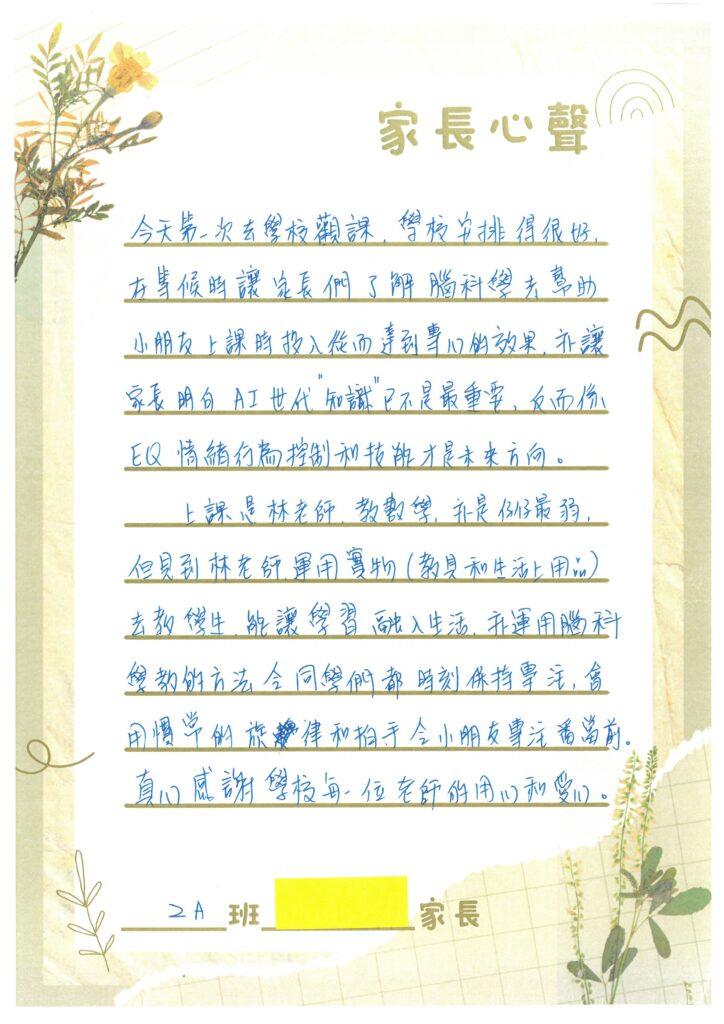 家長心聲
今天第一次去學校觀課，學校安排得很好，
在等候時讓家長們了解腦科學去幫助
小朋友上課時投入從而達到專心的效果，亦讓
家長明白AI世代"知識"已不是最重要，反而係
EQ情緒行為控制和技能才是未來方向。
上課是林老師，教數學，亦是仔仔最弱，
但見到林老師運用實物(教具和生活上用品)
去教學生，能讓學習融入生活，亦運用腦科
學教的方法令同學們都時刻保持專注，會
用慣常的旋律和拍手令小朋友專注番當前。
真心感謝學校每一位老師的用心和愛心。
2A班 家長